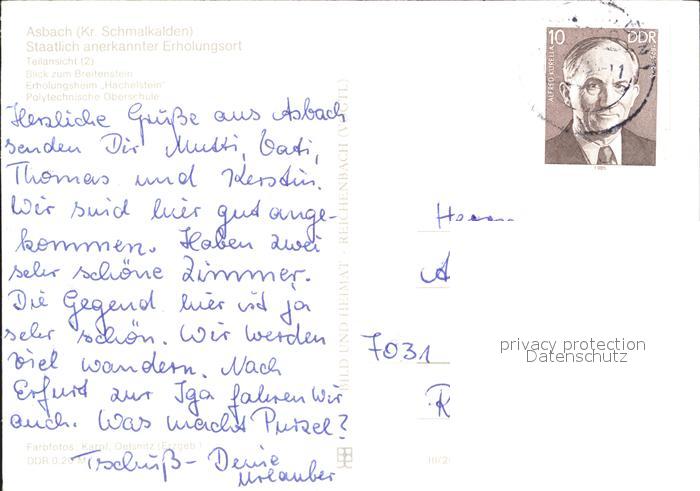 Asbach (Kr. Schmalkalden)
Staatlich anerkannter Erholungsort
Teilansicht (2)
Blick zum Breitenstein
Erholungsheim „Hachelstein"
Polytechnische Oberschule
Herzliche Grüße aus Asbach
senden Dir Mutti, Vati,
Thomas und Kerstin.
Wir sind hier gut ange-
kommen. Haben zwei
sehr schöne Zimmer.
Die Gegend hier ist ja
sehr schön. Wir werden
viel wandern. Nach
Erfurt zur Iga fahren wir
auch. Was macht Purzel?
Tschüß - Deine
Urlauber
Farbfotos: Karpf, Oelsnitz (Erzgeb.)
DDR 0,20 M
BILD UND HEIMAT · REICHENBACH (VOGTL)
III/2
10 DDR
ALFRED KURELLA
1985
Herrn
A
7031
R
privacy protection
Datenschutz